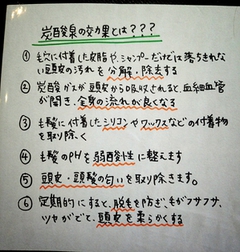 炭酸泉の効果とは???
① 毛穴に付着した皮脂や、シャンプーだけでは落ちきれな
い頭皮の汚れを分解・除去する
② 炭酸ガスが頭皮から吸収されると、血細血管
が開き、全身の流れが良くなる
③ 毛髪に付着したシリコンやワックスなどの付着物
を取り除く
④ 毛髪のPHを弱酸性に整えます
⑤ 頭皮・頭髪の匂いを取り除きます。
⑥ 定期的にすると、脱毛を防ぎ、毛がフサフサ、
ツヤがでて、頭皮を柔らかくする